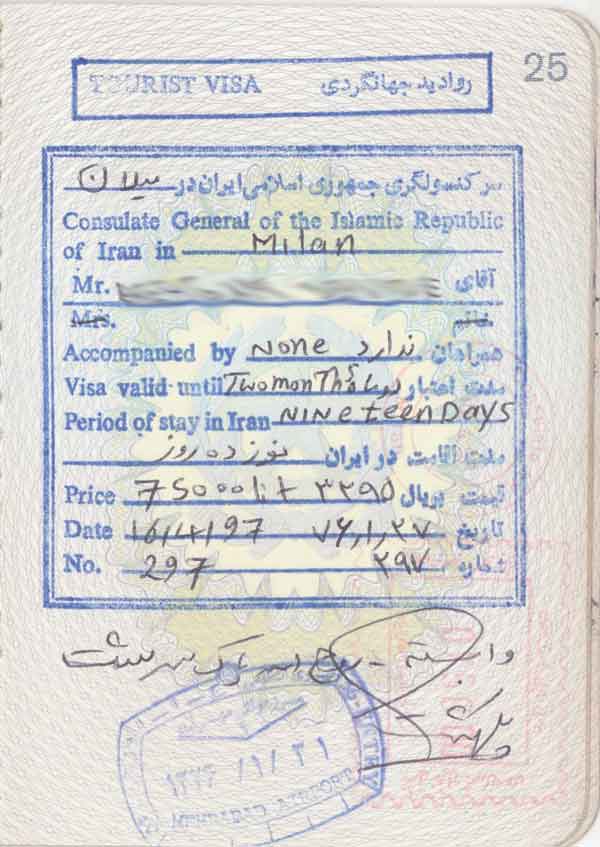 25
TOURIST VISA روادید جهانگردی
سر کنسولگری جمهوری اسلامی ایران در میلان
Consulate General of the Islamic Republic
of Iran in Milan
Mr. آقای
Mrs. خانم
Accompanied by None ندارد همراهان
Visa valid until Two months دو ماه مدت اعتبار
Period of stay in Iran NINeteen Days
نوزده روز مدت اقامت در ایران
Price قیمت بریال
Date 16/4/97 ۷۶،۱،۲۷ تاریخ
No. 297 ۲۹۷ شماره
وابسته
ENTRY
۱۳۷۶/۱/۳۱
MEHRABAD AIRPORT